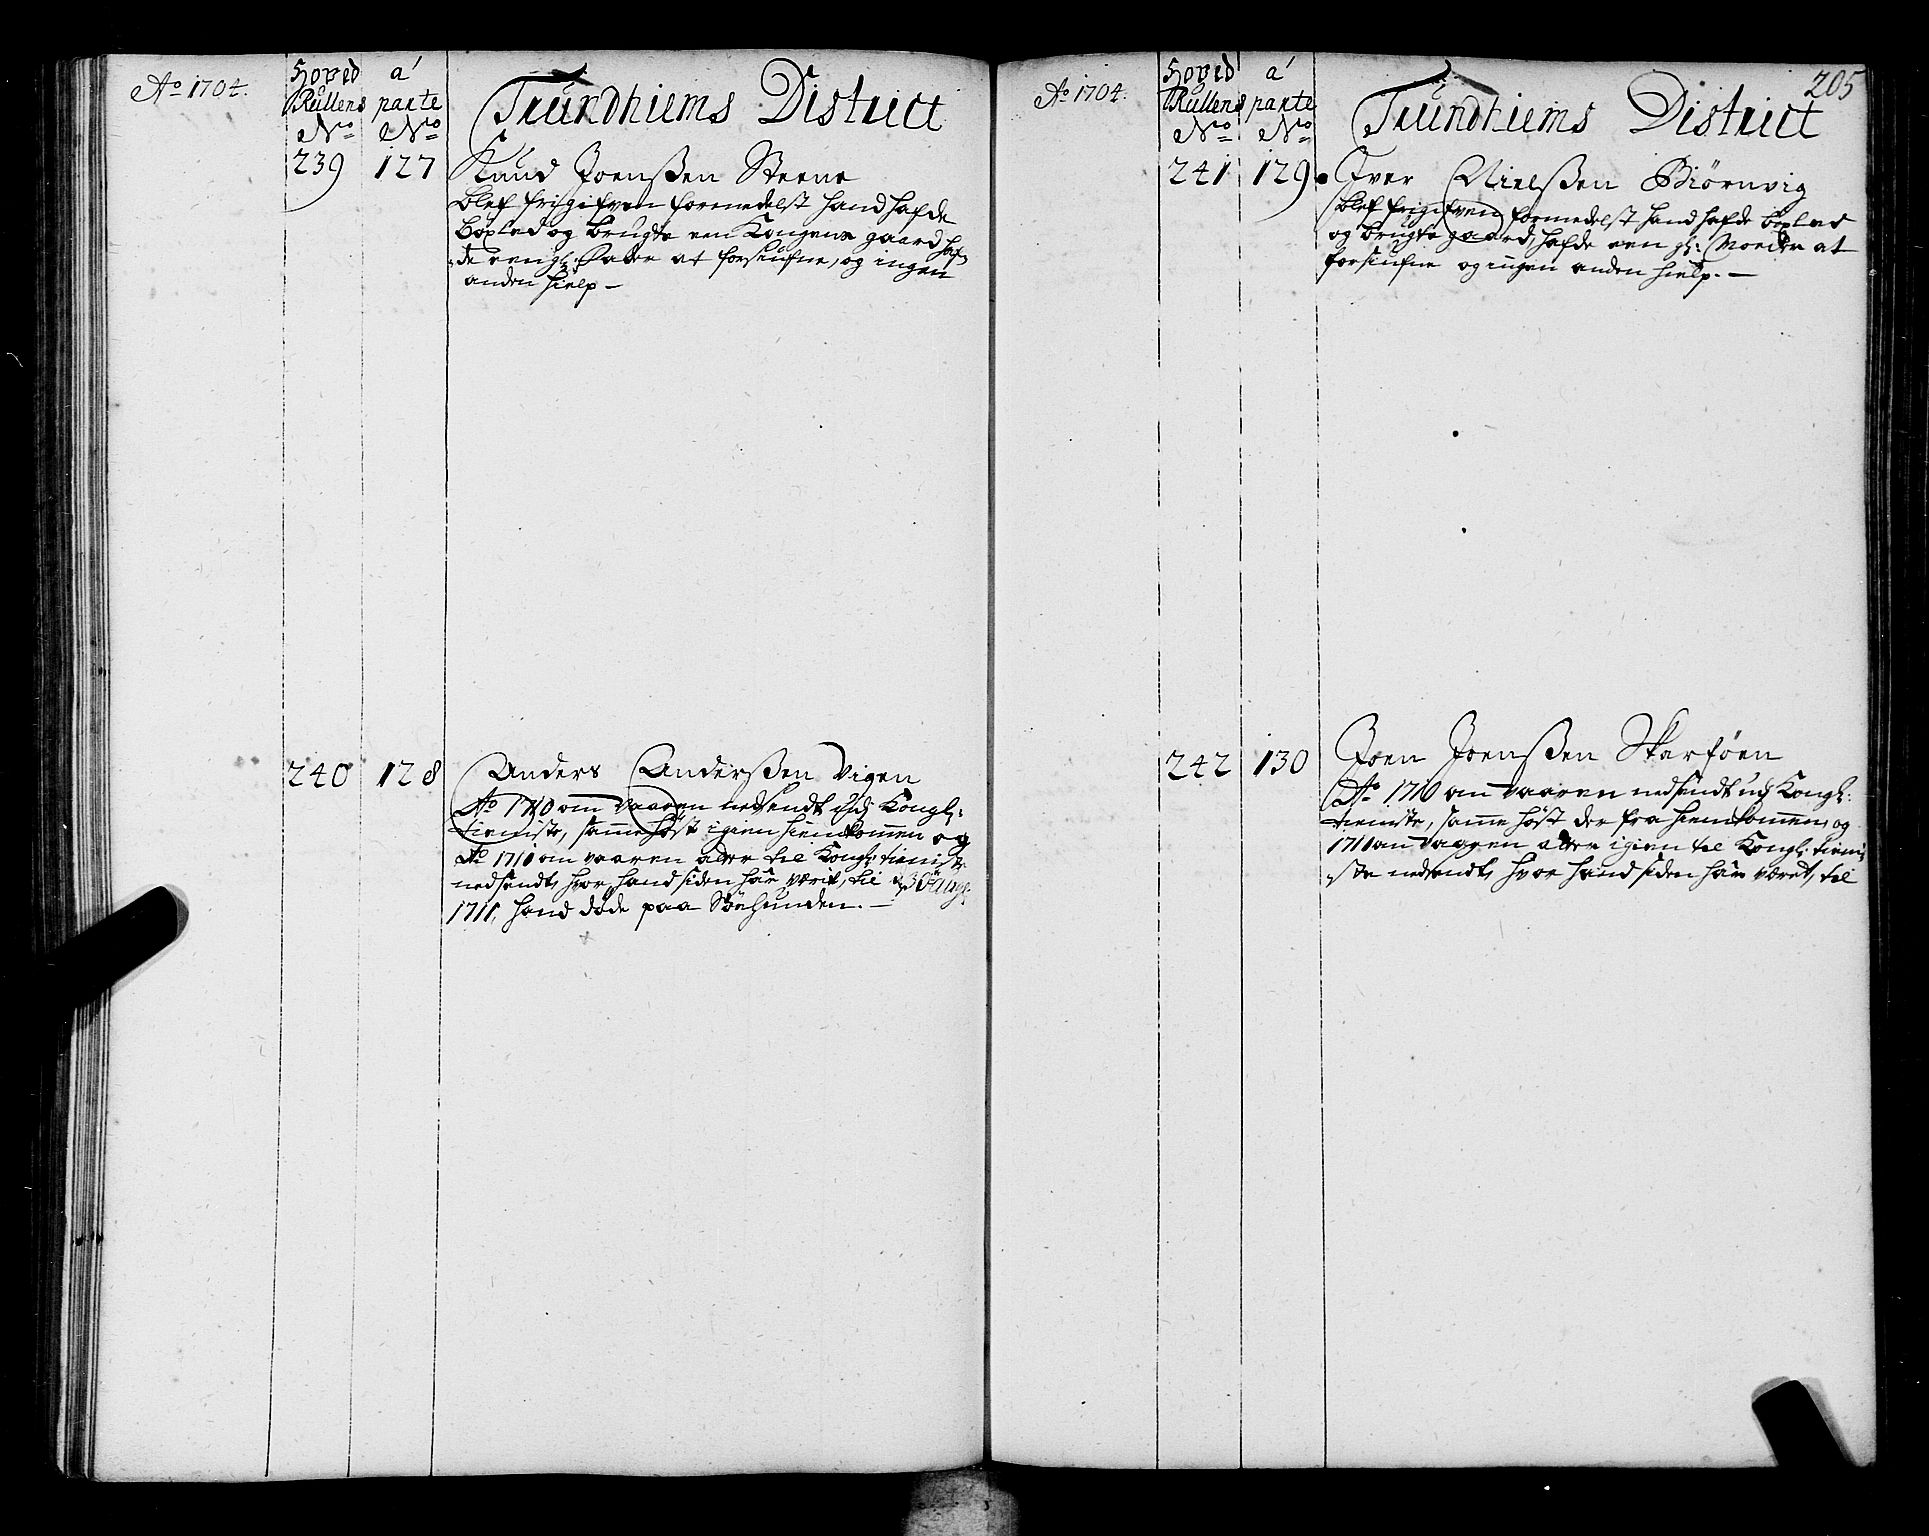 Ao 1704.
Hoved Rullens No
a' parte No
Trundhiems District
239 127 Knud Joenssen Steene
blef frigifven formedelst hand hafde
böxled og brugte een Kongens gaard haf-
de een gl: Fader at forsiufne, og ingen
anden hielp –
240 128 Anders Anderssen Vigen
Ao 1710 om vaaren nedsendt udj Kongl:
tieniste, samme höst igien hiemkommen og
Ao 1711 om vaaren atter til Kongl: tieniste
nedsendt, hvor hand siden har værit, til d 30
1711, hand döde paa Söehunden. –
205
Ao 1704.
Hoved Rullens No
a' parte No
Trundhiems District
241 129 Iver Nielssen Biörnvig
blef frigifven formedelst hand hafde böxled
og brugte gaard, hafde een gl: Moeder at
forsiufne og ingen anden hielp. –
242 130 Joen Joenssen Skarföen
Ao 1710 om vaaren nedsendt udj Kongl:
tieniste, samme höst der fra hiemkommen, og
1711 om vaaren atter igien til Kongl: tieni-
ste nedsendt, hvor hand siden har været, til